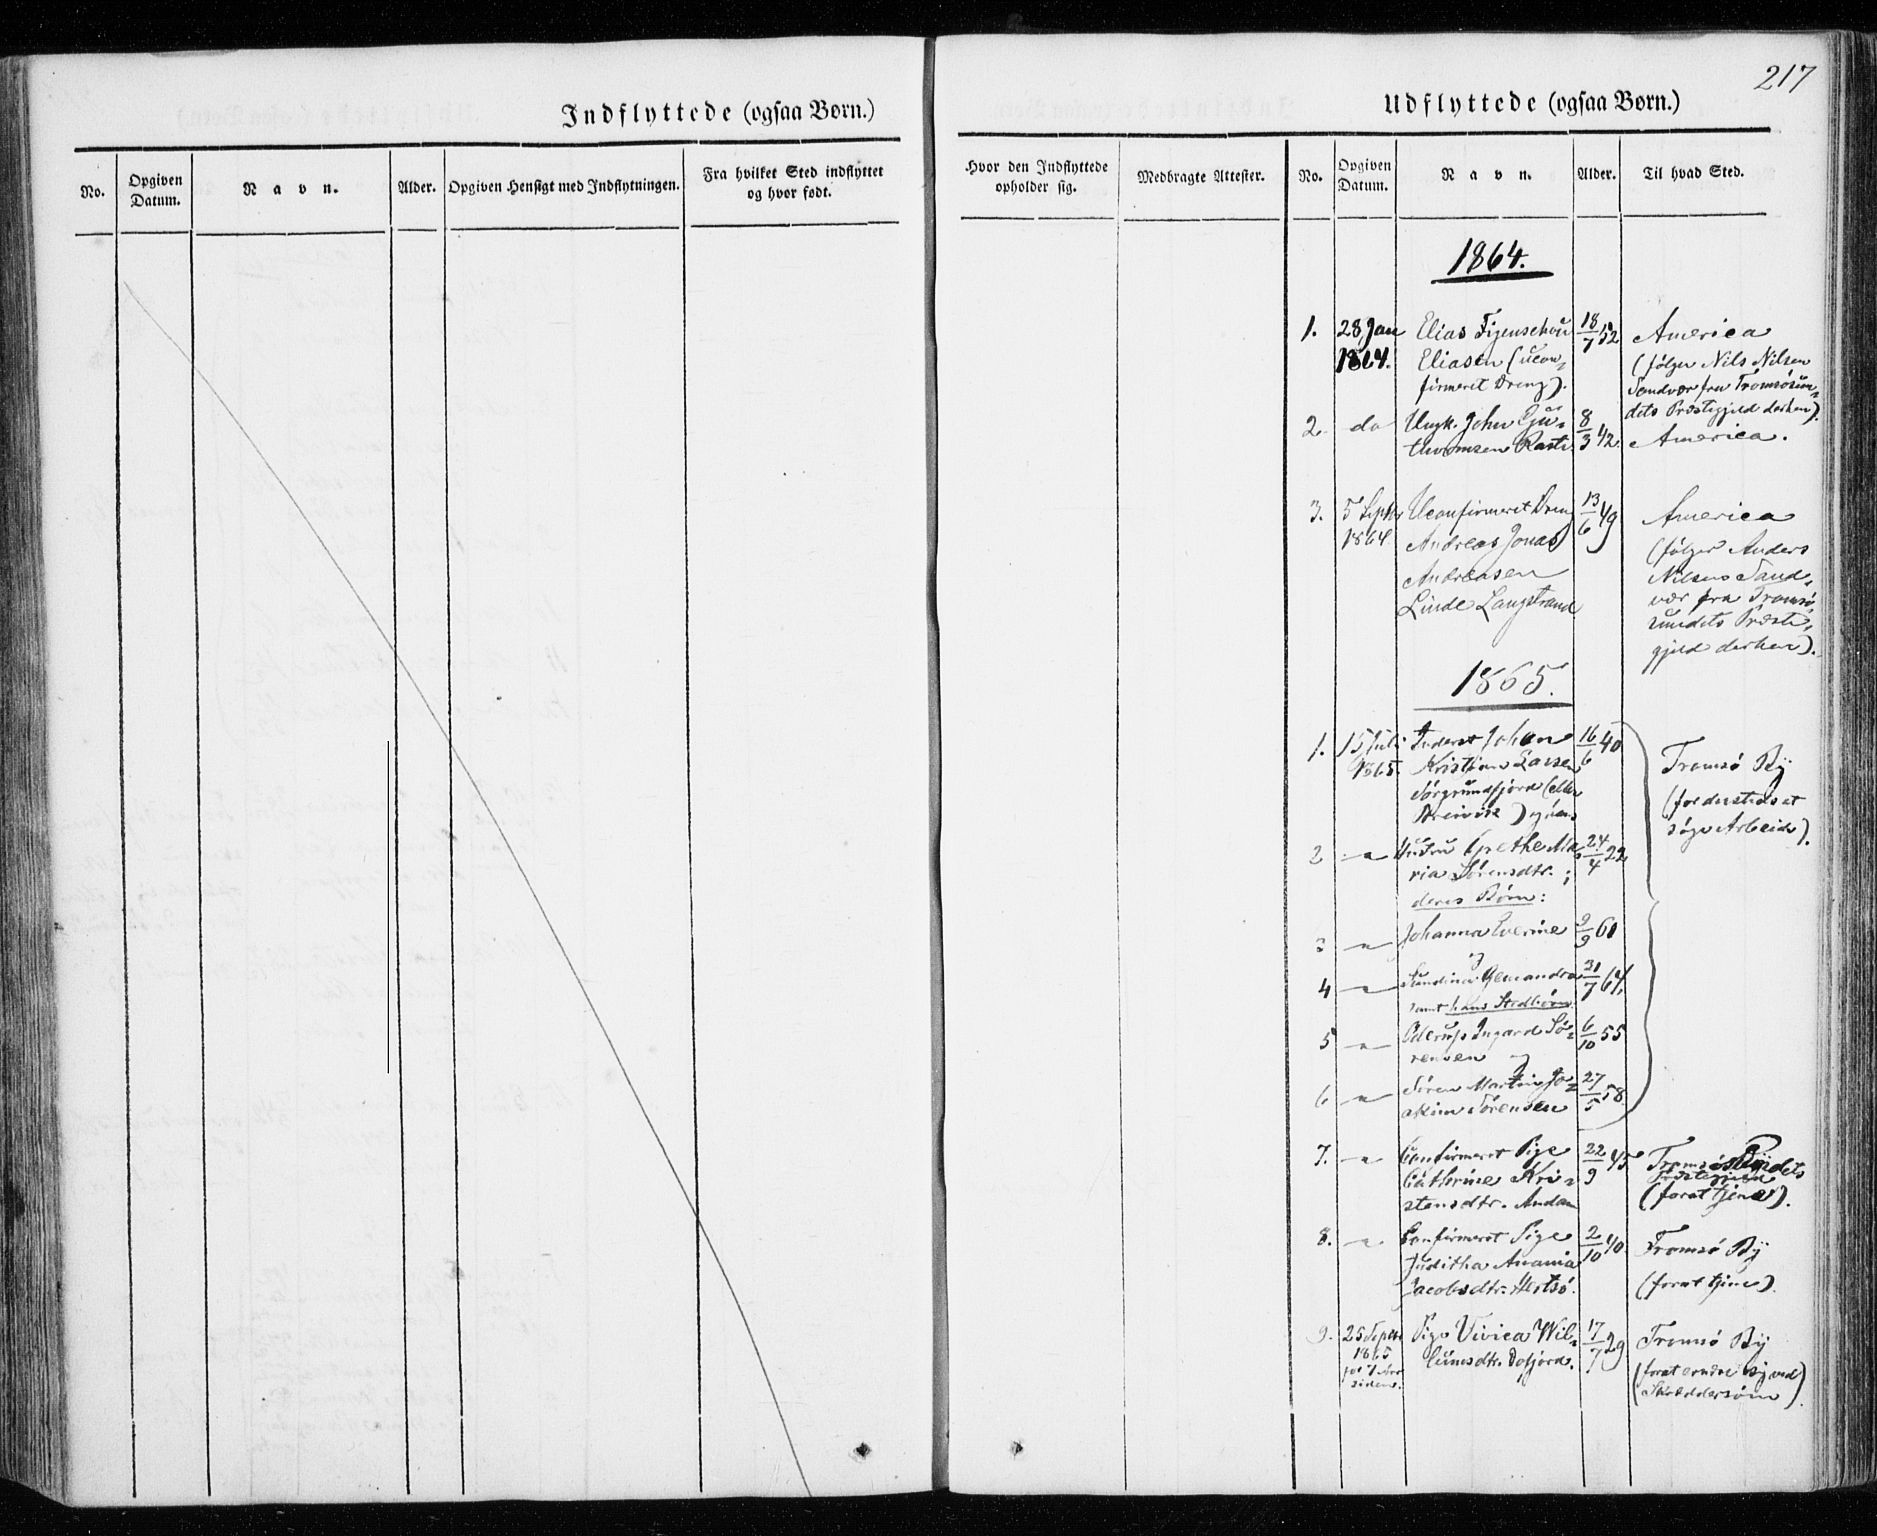 217
Indflyttede (ogsaa Børn.)
No.
Opgiven Datum.
Navn.
Alder.
Opgiven Hensigt med Indflytningen.
Fra hvilket Sted indflyttet og hvor født.
Udflyttede (ogsaa Børn.)
Hvor den Indflyttede opholder sig.
Medbragte Attester.
No.
Opgiven Datum.
Navn.
Alder.
Til hvad Sted.
1864.
1. 28 Jan Elias Figenschou 18/7 52 America
1864. Eliasen (ucon- (følger Nils Nilsen
firmeret Dreng). Sandvær fra Tromsøsun-
dets Præstegjeld derhen).
2. do Ungk. John 8/3 42 America.
3. 5 Septbr Uconfirmeret Dreng 13/6 49 America
1864. Andreas Jonas (følger Anders
Andreasen Nilsen Sand-
Linde Langstrand vær fra Tromsø
sundets Præste-
gjeld derhen).
1865.
1. 15 Juli Inderst Johan 16/6 40 Tromsø By
1865. Kristian Larsen (for dersteds at
Sørgrundfjord søge Arbeide).
2 " Hustru Grethe Ma- 24/4 22
ria Sørensdtr.;
deres Børn:
3 " Johanna 60
og
4 " 31/7 64,
samt hans Stedbørn
5 " Ingard Sø- 6/10 55
rensen og
6 " Søren Martin Jo- 27/5 58.
akim Sørensen
7. " Confirmeret Pige 22/9 45 Tromsø
Cathrine Kri- Præstegjeld
stensdtr. (forat tjene).
8. " Confirmeret Pige 2/10 40. Tromsø By
Juditha Anania (forat tjene).
Jacobsdtr.
9. 25 Septbr Pige Vivica Wil- 17/7 29 Tromsø By
1865 lumsdtr. Dafjord. (forat ernære sig ved
siden. Skræddersøm).